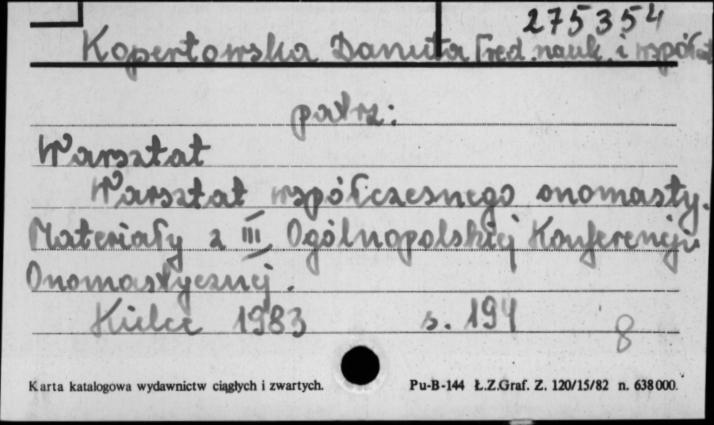 275354
Kopertowska Danuta [red. nauk. i współaut
patrz:
Warsztat
Warsztat współczesnego onomasty.
Materiały z III Ogólnopolskiej Konferencji
Onomastycznej.
Kielce 1983 s. 194
8
Karta katalogowa wydawnictw ciągłych i zwartych. Pu-B-144 Ł.Z.Graf. Z. 120/15/82 n. 638000.